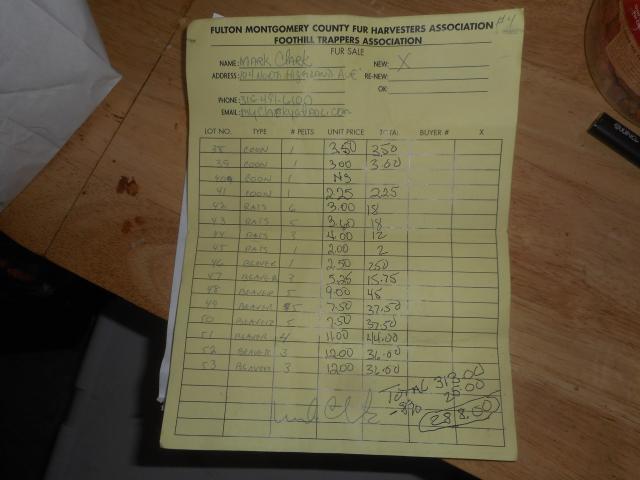 #4
FULTON MONTGOMERY COUNTY FUR HARVESTERS ASSOCIATION
FOOTHILL TRAPPERS ASSOCIATION
FUR SALE
NAME: MARK Clark NEW: X
ADDRESS: NORTH HIGHLAND AVE RE-NEW:
OK:
PHONE:
EMAIL:
LOT NO. TYPE # PELTS UNIT PRICE TOTAL BUYER # X
38 COON 1 3.50 3.50
39 COON 1 3.00 3.00
40 COON 1 NS
41 COON 1 2.25 2.25
42 RATS 6 3.00 18
43 RATS 5 3.60 18
44 RATS 3 4.00 12
45 RATS 1 2.00 2
46 BEAVER 1 2.50 2.50
47 BEAVER 3 5.25 15.75
48 BEAVER 5 9.00 45
49 BEAVER 5 7.50 37.50
50 BEAVER 5 7.50 37.50
51 BEAVER 4 11.00 44.00
52 BEAVER 3 12.00 36.00
53 BEAVER 3 12.00 36.00
TOTAL 313.00
25.00
288.00